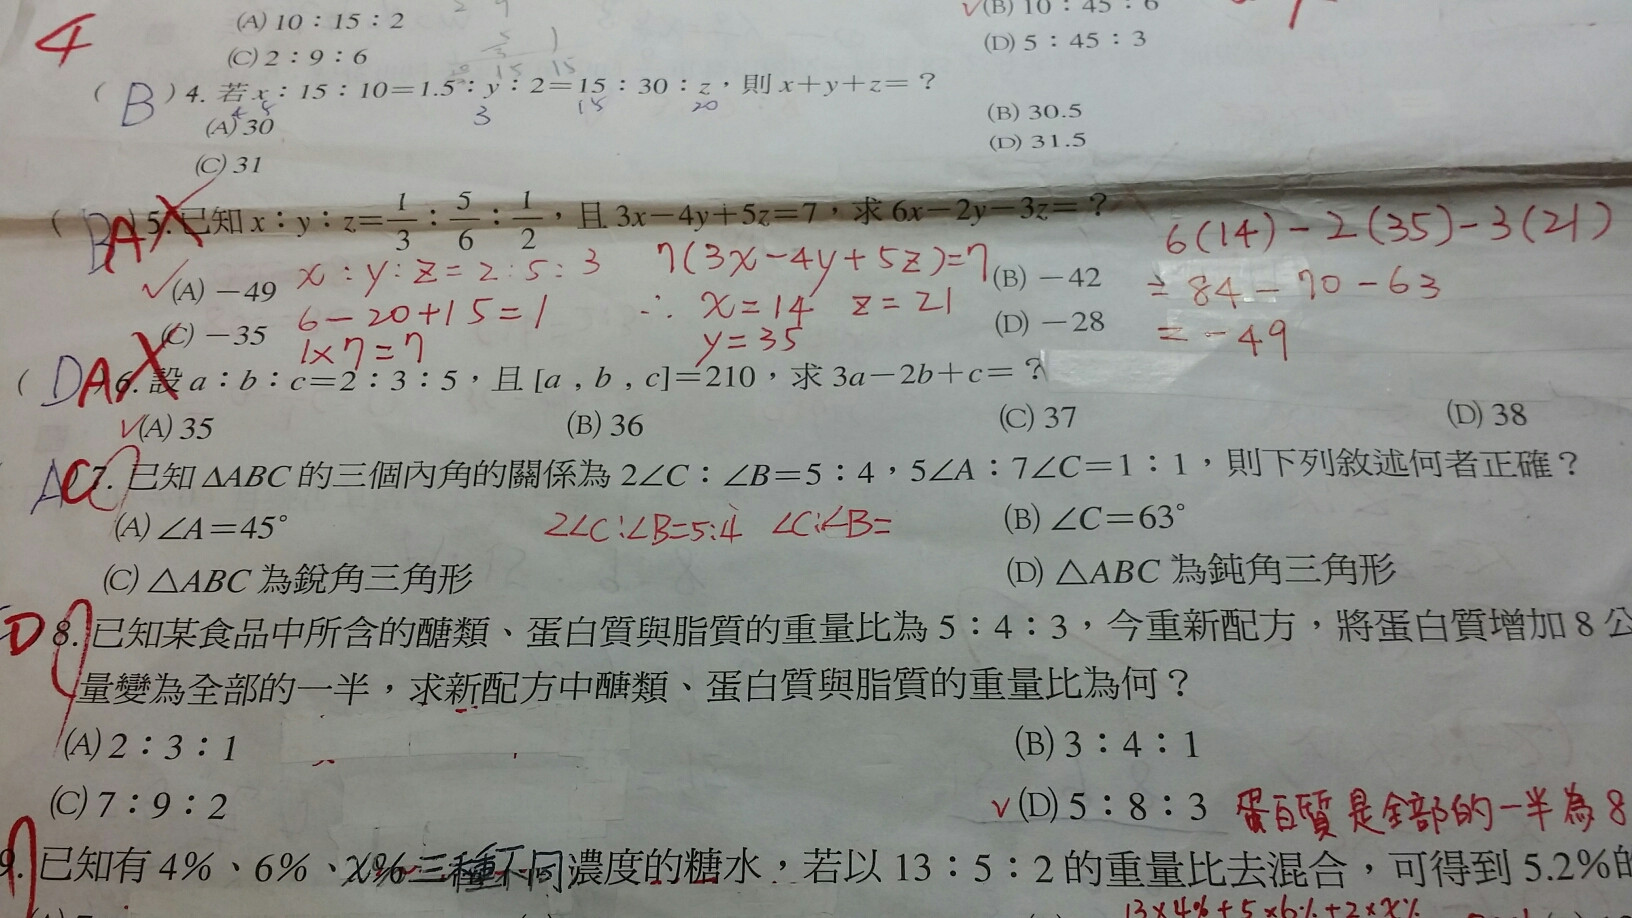 4
(A) 10：15：2
✓(B) 10：45：6
(C) 2：9：6
(D) 5：45：3
( B ) 4. 若 x：15：10=1.5：y：2=15：30：z，則 x+y+z=？
3 15 20
(A) 30
(B) 30.5
(C) 31
(D) 31.5
( B A 5. 已知 x：y：z=1/3：5/6：1/2，且 3x-4y+5z=7，求 6x-2y-3z=？
6(14)-2(35)-3(21)
✓(A) -49
x:y:z=2:5:3
7(3x-4y+5z)=7
(B) -42
=84-70-63
(C) -35
6-20+15=1
∴ x=14 z=21
(D) -28
=-49
1×7=7
y=35
( D A 6. 設 a：b：c=2：3：5，且 [a，b，c]=210，求 3a-2b+c=？
✓(A) 35
(B) 36
(C) 37
(D) 38
A C 7. 已知 △ABC 的三個內角的關係為 2∠C：∠B=5：4，5∠A：7∠C=1：1，則下列敘述何者正確？
(A) ∠A=45°
2∠C:∠B=5:4 ∠C:∠B=
(B) ∠C=63°
(C) △ABC 為銳角三角形
(D) △ABC 為鈍角三角形
D 8. 已知某食品中所含的醣類、蛋白質與脂質的重量比為 5：4：3，今重新配方，將蛋白質增加 8 公
量變為全部的一半，求新配方中醣類、蛋白質與脂質的重量比為何？
(A) 2：3：1
(B) 3：4：1
(C) 7：9：2
✓(D) 5：8：3 蛋白質是全部的一半為8
9. 已知有 4%、6%、x%三種不同濃度的糖水，若以 13：5：2 的重量比去混合，可得到 5.2%的
13×4%+5×6%+2×x%